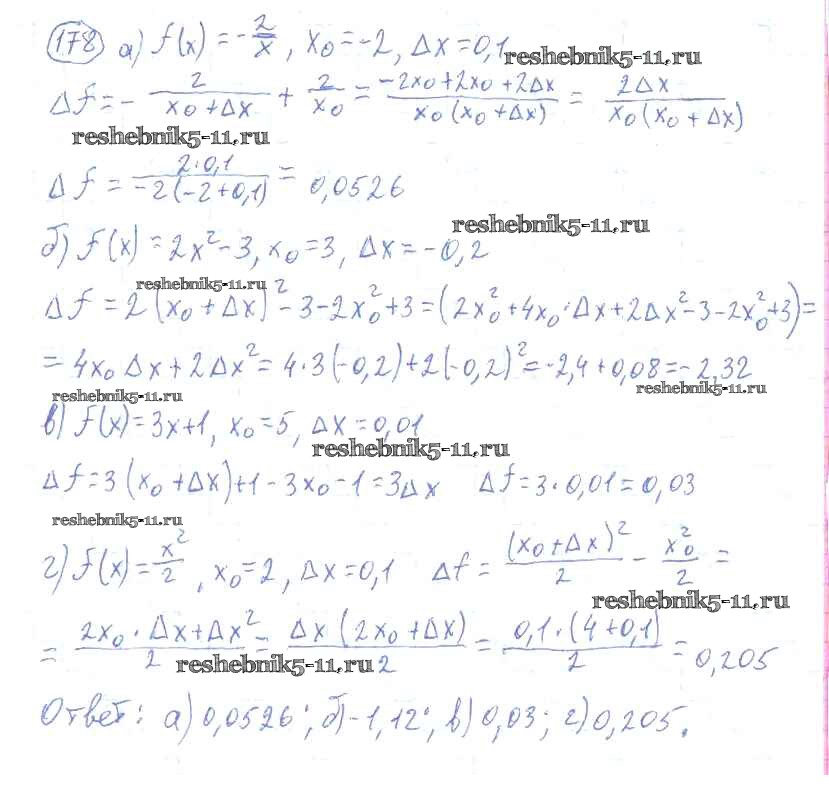 178 а) f(x) = -2/x, x₀ = -2, Δx = 0,1 reshebnik5-11.ru
Δf = - 2/(x₀+Δx) + 2/x₀ = (-2x₀+2x₀+2Δx)/(x₀(x₀+Δx)) = 2Δx/(x₀(x₀+Δx))
reshebnik5-11.ru
Δf = 2·0,1/(-2(-2+0,1)) = 0,0526
reshebnik5-11.ru
б) f(x) = 2x²-3, x₀=3, Δx = -0,2
reshebnik5-11.ru
Δf = 2(x₀+Δx)²-3-2x₀²+3 = (2x₀²+4x₀·Δx+2Δx²-3-2x₀²+3) =
= 4x₀Δx+2Δx² = 4·3(-0,2)+2(-0,2)² = -2,4+0,08 = -2,32
reshebnik5-11.ru reshebnik5-11.ru
в) f(x) = 3x+1, x₀=5, Δx = 0,01
reshebnik5-11.ru
Δf = 3(x₀+Δx)+1-3x₀-1 = 3Δx Δf = 3·0,01 = 0,03
reshebnik5-11.ru
г) f(x) = x²/2, x₀=2, Δx = 0,1 Δf = (x₀+Δx)²/2 - x₀²/2 =
reshebnik5-11.ru
= (2x₀·Δx+Δx²)/2 = Δx(2x₀+Δx)/2 = 0,1·(4+0,1)/2 = 0,205
reshebnik5-11.ru
Ответ: а) 0,0526; б) -1,12; в) 0,03; г) 0,205.